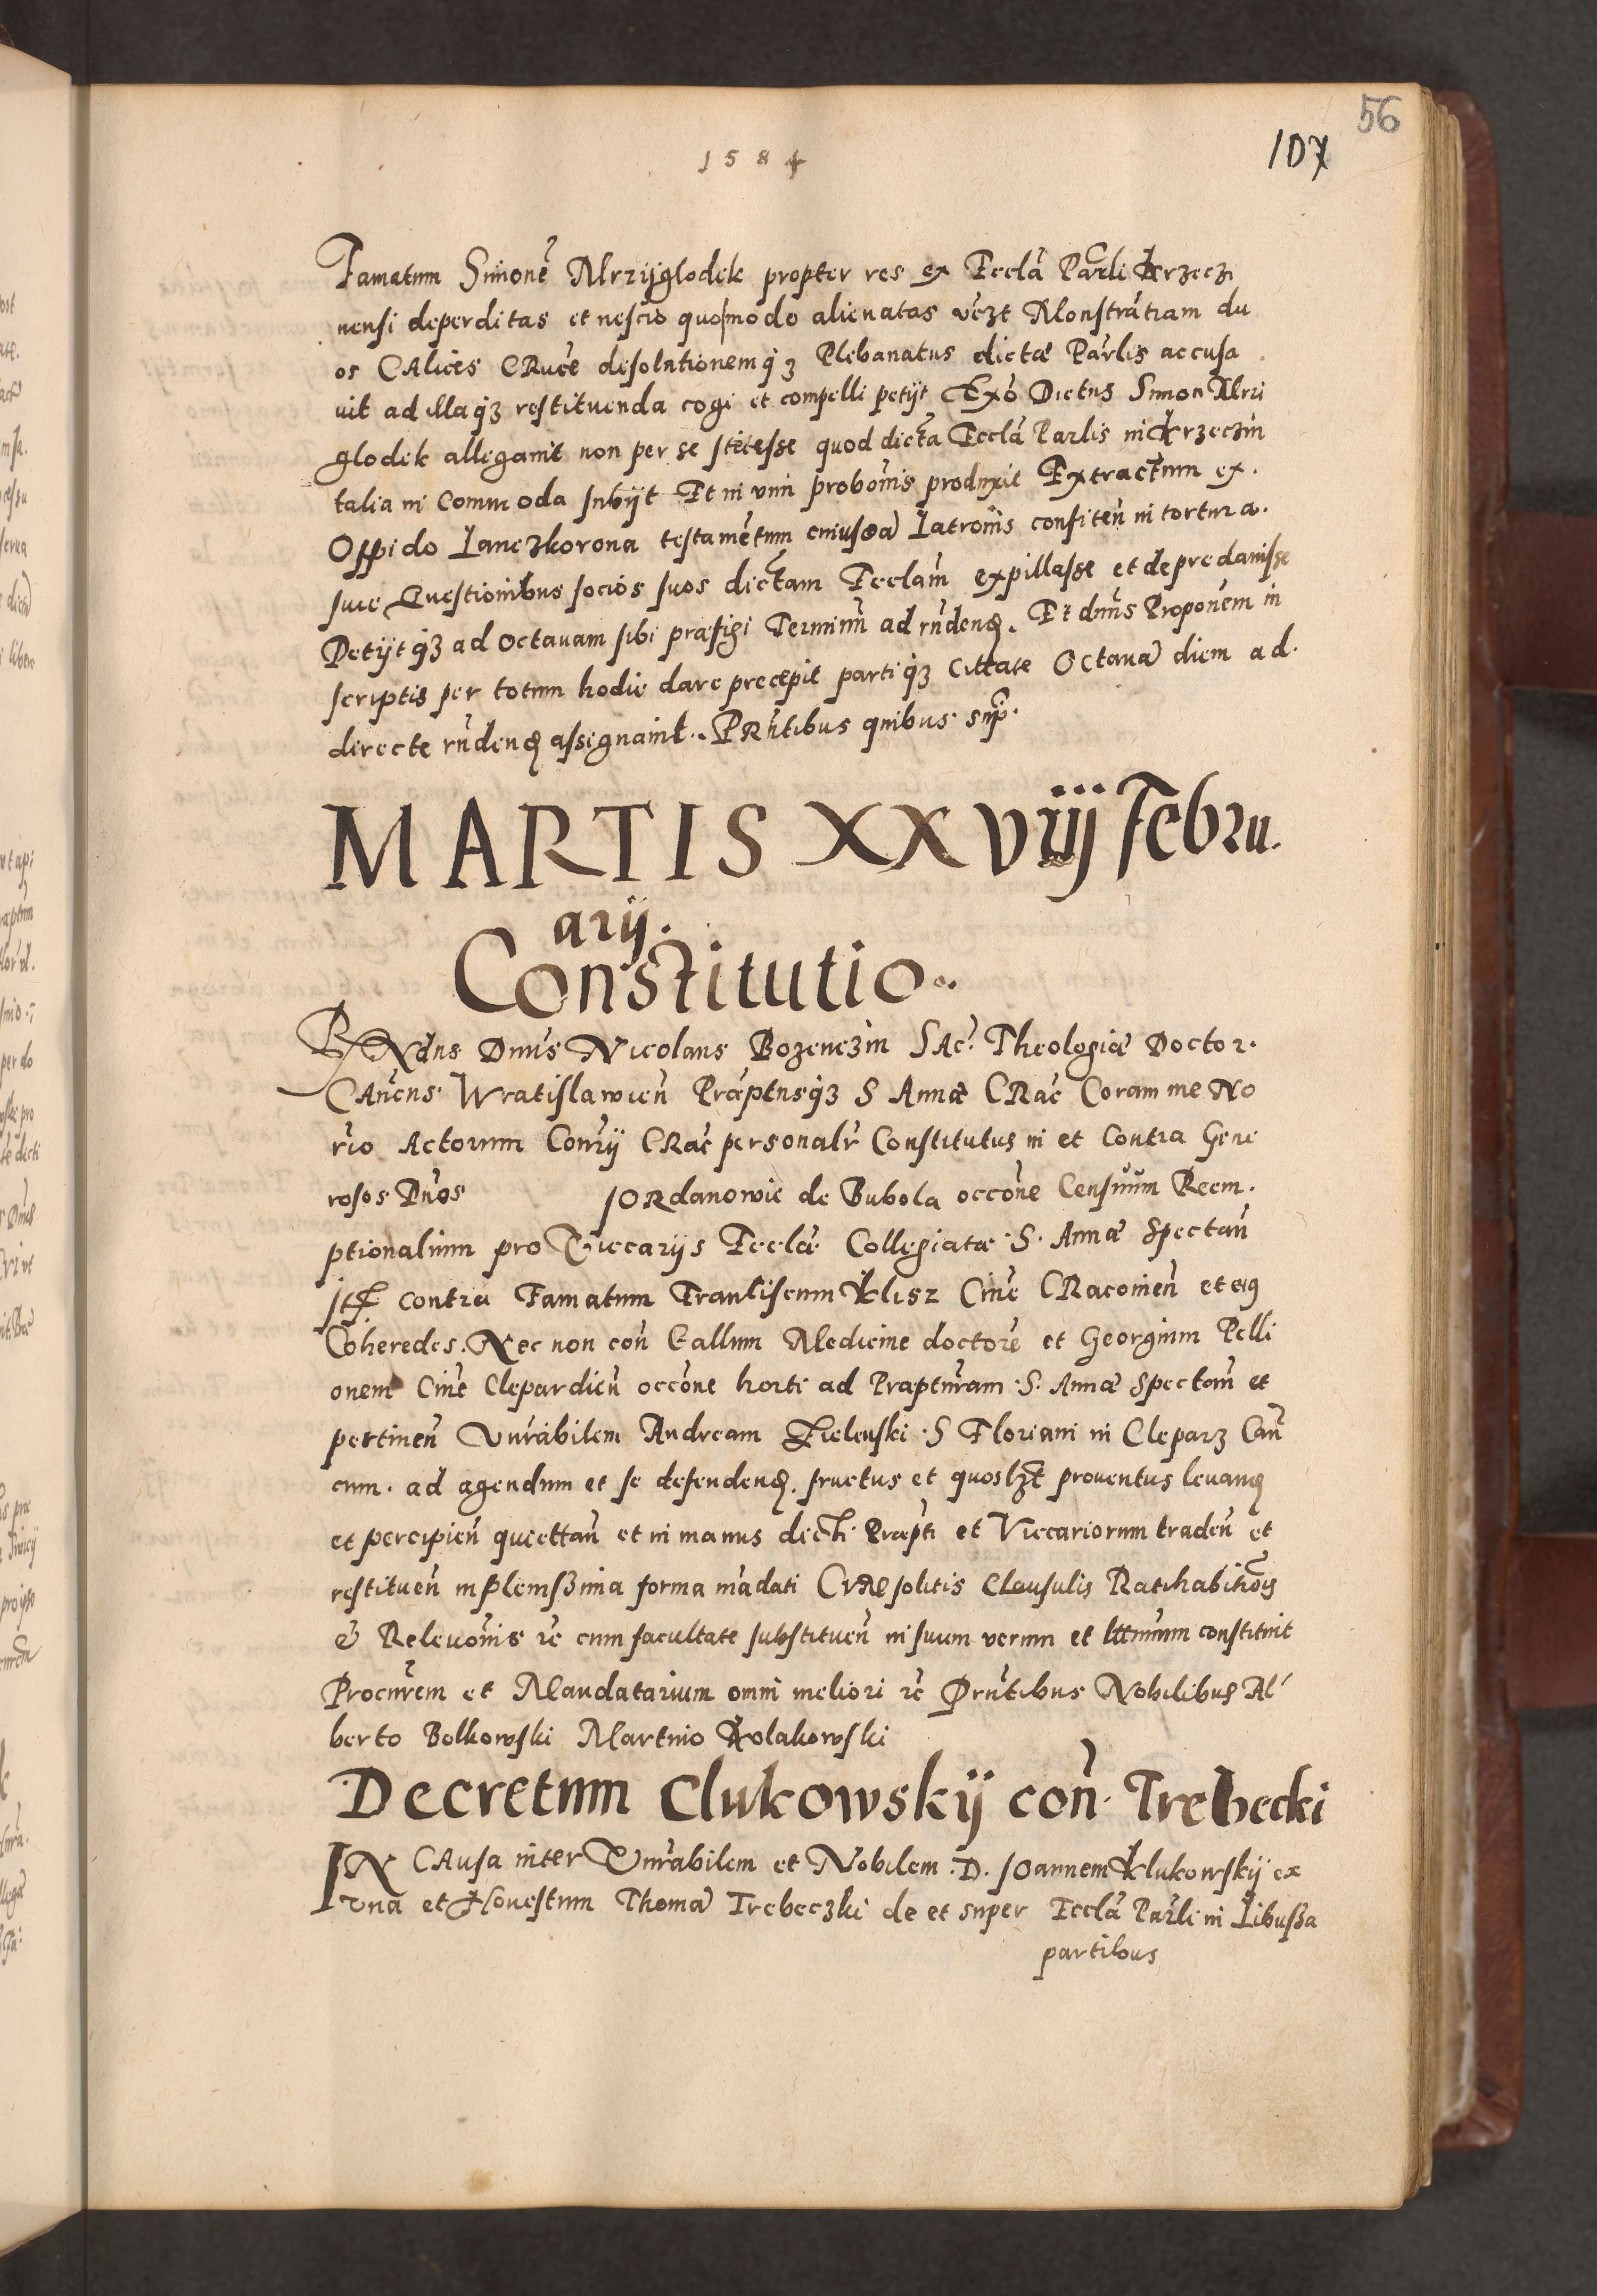 56
1584
107
Famatum Simonē Mrzÿglodek propter res ex Eccla Parli Krzecz
nensi deperditas et nescio quomodo alienatas vezt Monstratiam du
os CAlices CRucē desolationemq̃ Plebanatus dictæ Parlis accusa
uit ad illaq̃ restituenda cogi et compelli petijt Exō Dictus Simon Mrzi
glodek allegauit non per se stetesse quod dicta Eccla Parlis in Krzeczin
talia in commoda subijt Et in vim probonis produxit Extractum ex
Oppido Lanczkorona testamētum cuiusdā Latronis confiteñ in tortura
sue Questionibus socios suos dictam Ecclam expillasse et depredauisse
Petijt q̃ ad octauam sibi præfigi Terminū ad rñdend. Et dnus Proponem in
scriptis per totum hodie dare precepit partiq̃ citate Octauā diem ad
directe rñdend assignauit. PRñtibus quibus sup.
MARTIS XXviij Febru
arij.
Constitutio..
RNdns Dnus Nicolaus Bozenczin SAc. Theologiæ Doctor.
CAncns Wratislawien Præptusq̃ S Annæ CRac Coram me No
rio Actorum Consrij CRac personalr Constitutus in et Contra Gene
rosos Dnos JORdanowie de Bubola occone Censuum Reem
ptionalium pro Viccarijs Ecclæ Collegiatæ S. Annæ Spectan
It contra Famatum Franciscum Klisz Ciuē CRacouien et eiq
Coheredes. Nec non con Gallum Medicine doctorē et Georgium Pelli
onem Ciuē Clepardien occone horti ad Præpturam S. Annæ Spectam et
pertinen Vnrabilem Andream Zielenski S Floriani in Cleparz Can
cum ad agendum et se defendend. fructus et quoslzt prouentus leuand
et percipien quiettan et in manus dicti Præpti et Viccariorum traden et
restituen in plenissima forma mādati CVM solitis Clausulis Ratihabitiōis
& Releuonis rc cum facultate substituen in suum verum et lttmum constituit
Procurem et Mandatarium omni meliori rc Prntibus Nobilibus Al
berto Bolkowski Martino Kolakowski
Decretum Clukowskij con Trebecki
IN CAusa inter Vnrabilem et Nobilem D. JOannem Klukowskij ex
vna et Honestum Thomā Trebeczki de et super Eccla Parli in Libusza
partibus